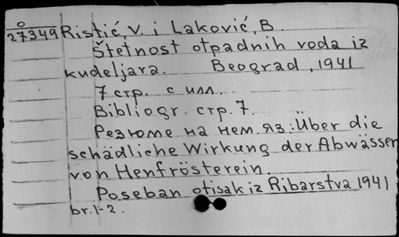 0
27349 Ristić, V. i Laković, B.
Štetnost otpadnih voda iz
kudeljara. Beograd, 1941
7 стр. с илл.
Bibliogr. стр. 7.
Резюме на нем. яз: Über die
schädliche Wirkung der Abwässer
von Henfrösterein.
Poseban otisak iz Ribarstva 1941
br. 1-2.